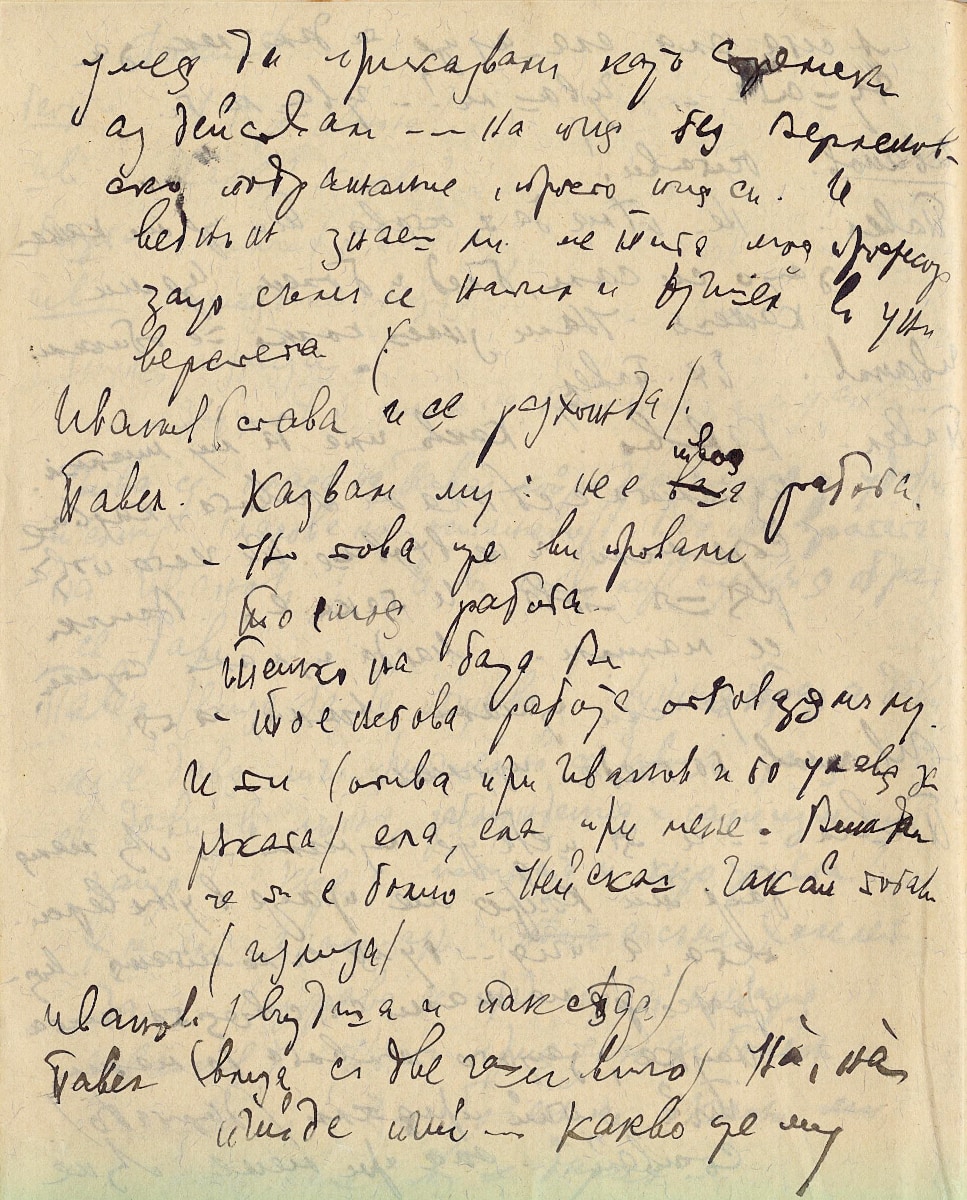 умея да приказвам като
аз действам -- на пия без Верленов-
ско подражание, просто пия си. И
веднъж знаеш ли ме пита моя професор
защо съм се напил и в уни
верситета (
Иванов (става и се разхожда/.
Павел. Казвам му: не е ваша твоя работа.
- Но това ще ви провали
То е моя работа.
Тежко на баща Ви
- То е негова работа отговарям му.
И ти (отива при Иванов и го улавя за
ръката/ ела, ела при мене. Виждам
че ти е болно - Не искаш. Чакай тогава
/излиза/
Иванов /въздиша и пак сяда/
Павел (влиза с две чаши вино) На̀, на̀
пий де пий -- какво ще му